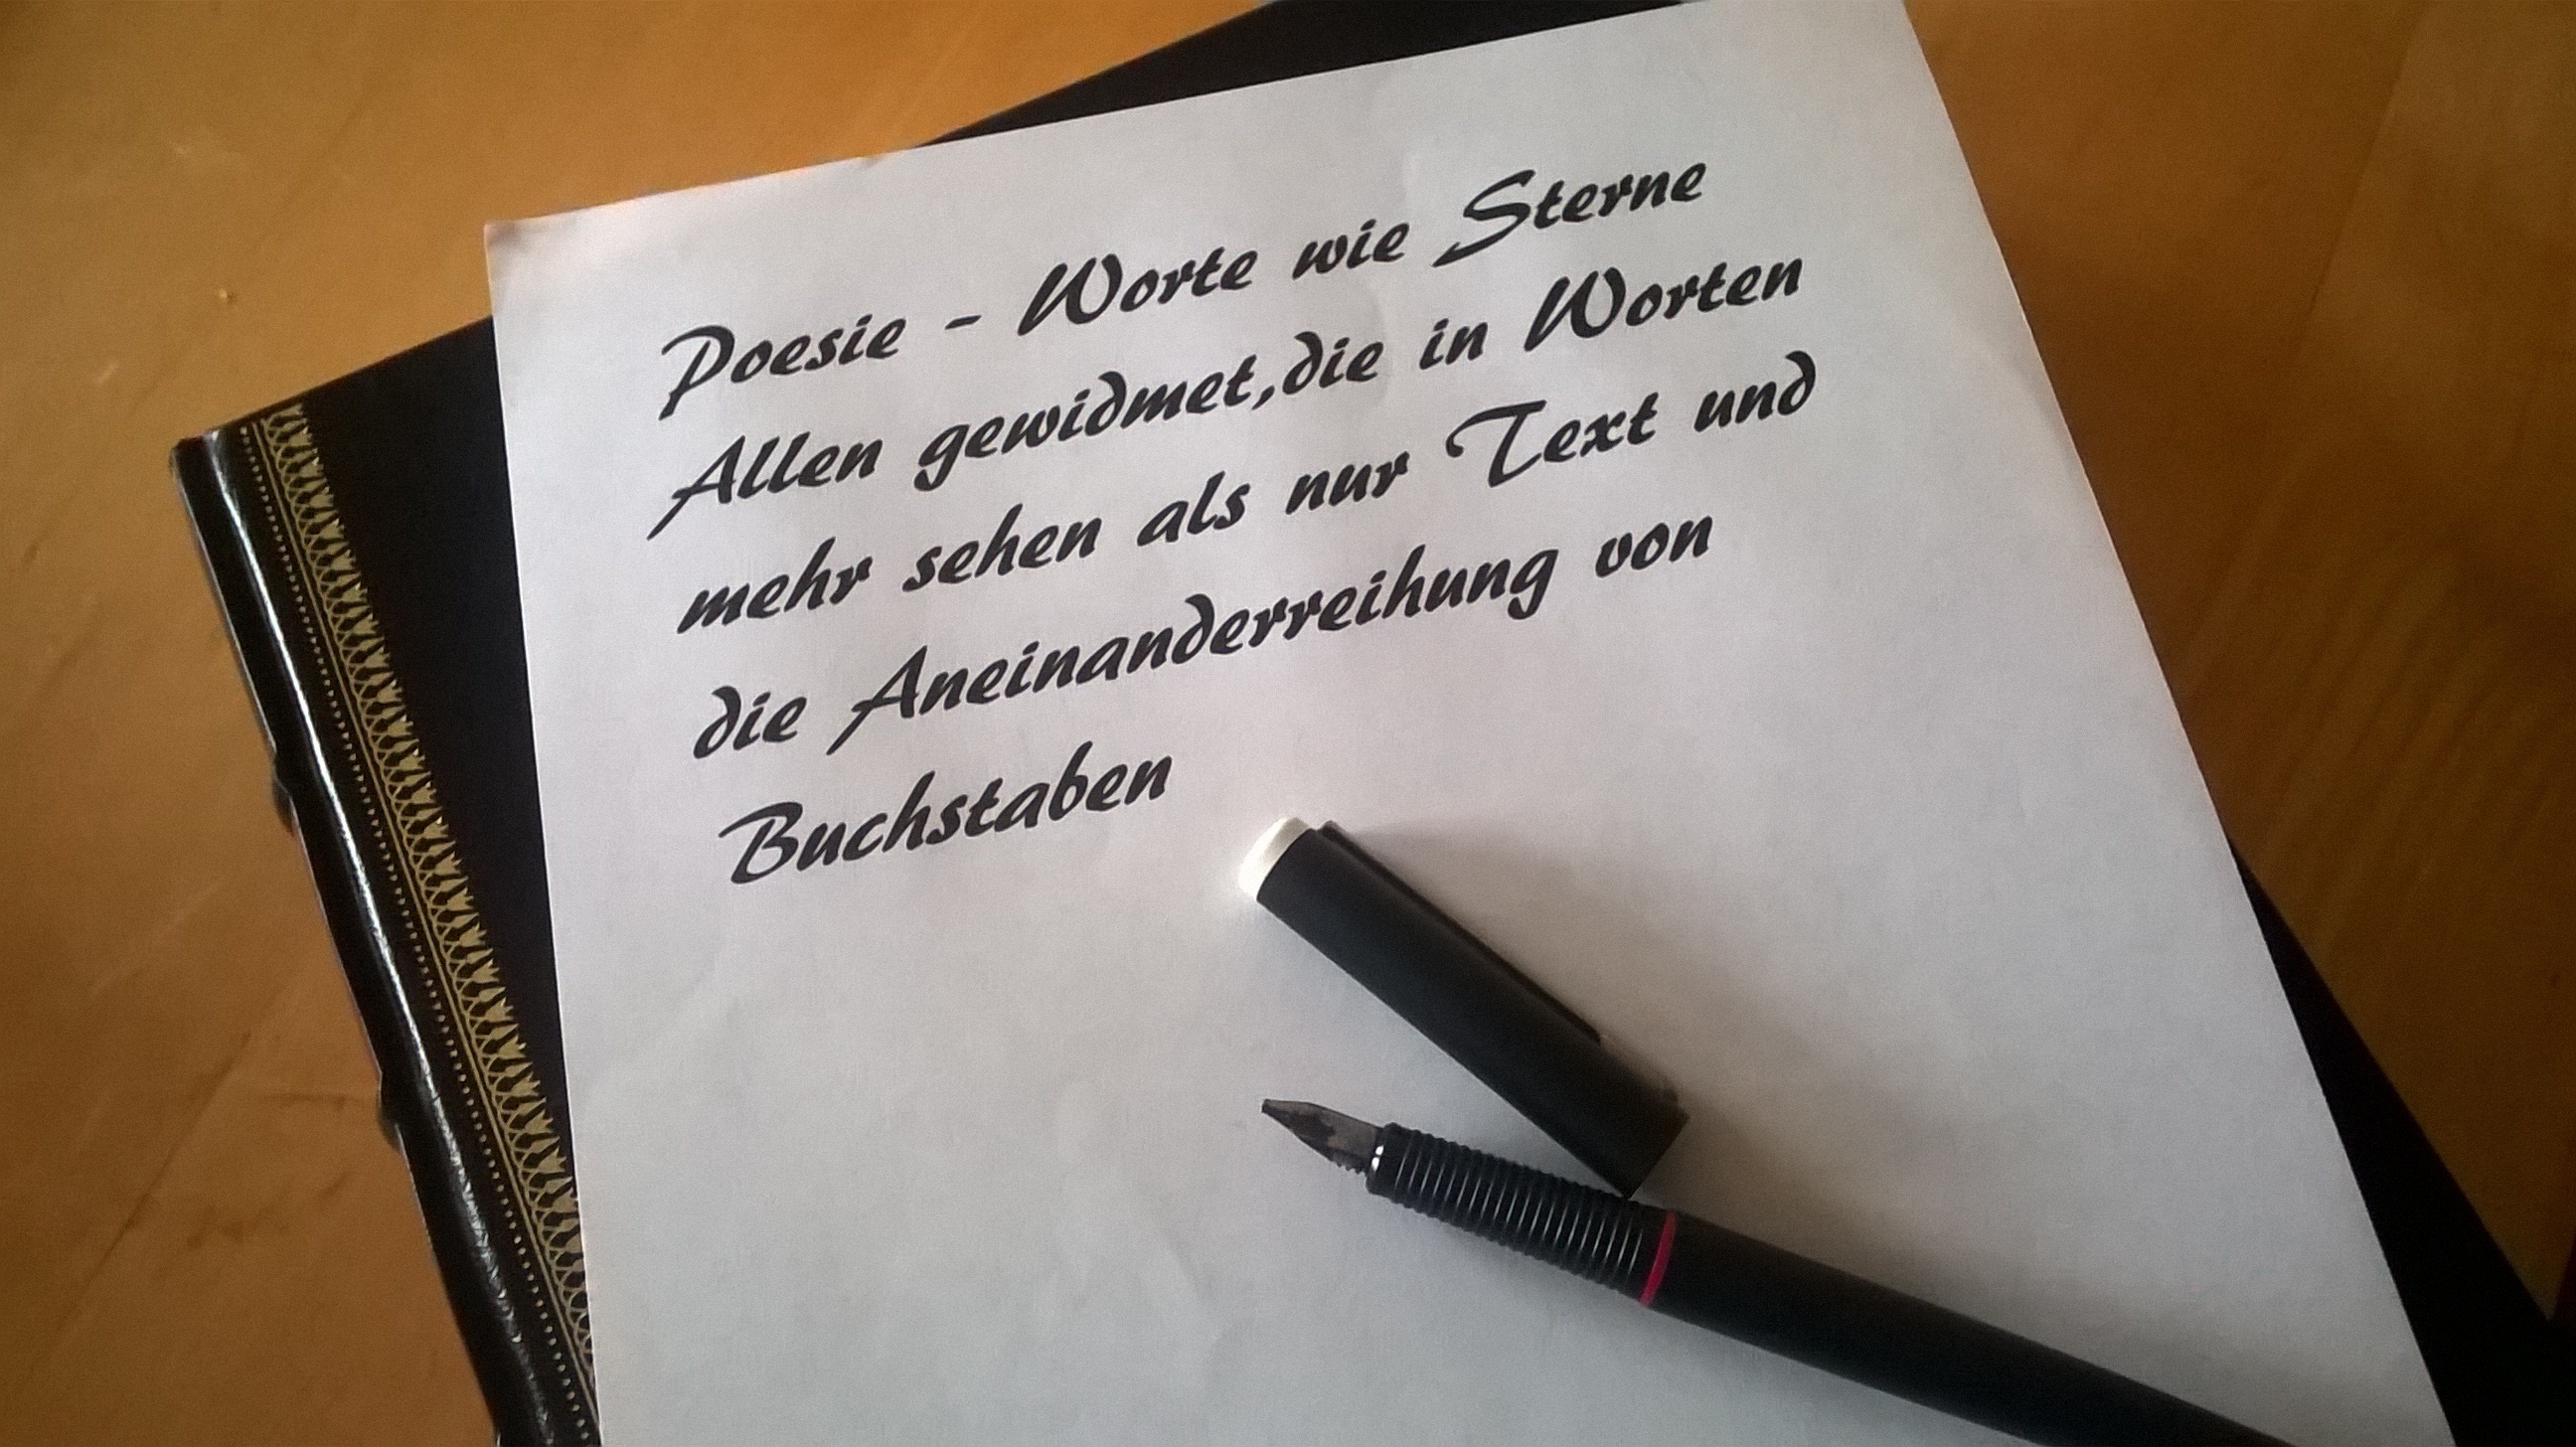 Poesie - Worte wie Sterne
Allen gewidmet,die in Worten
mehr sehen als nur Text und
die Aneinanderreihung von
Buchstaben